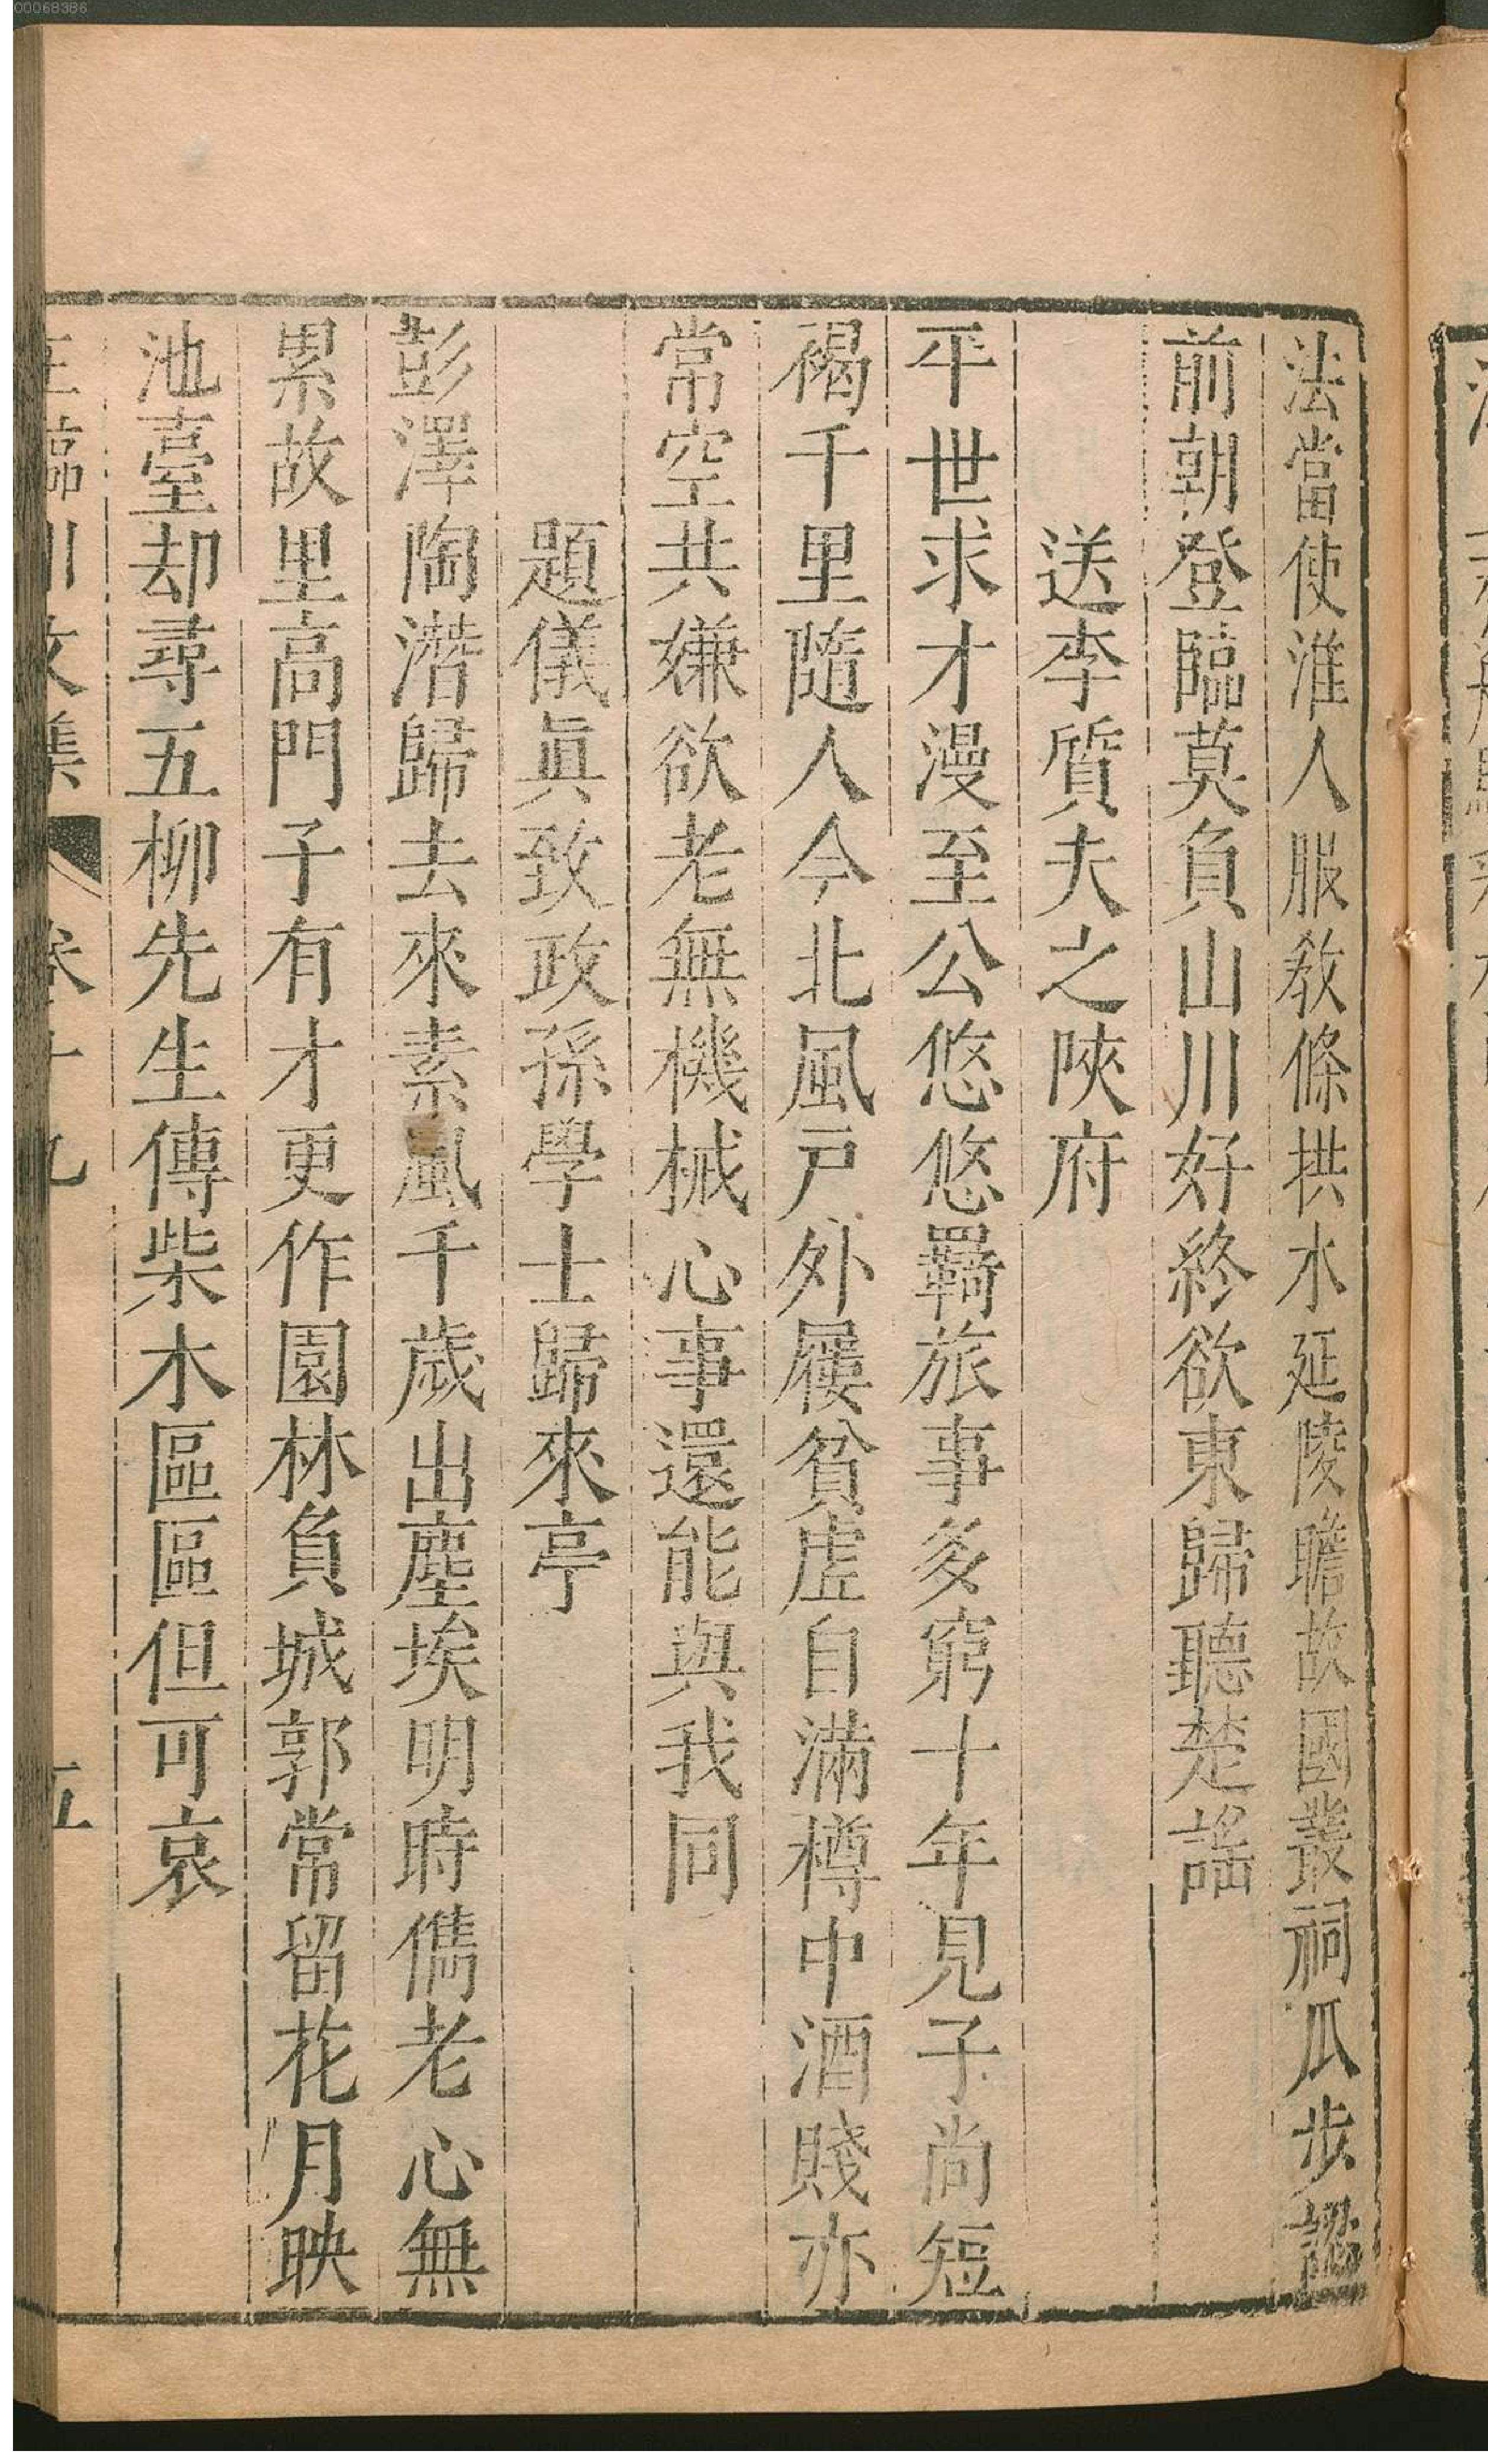 法當使淮人服教條拱水延陵瞻故國叢祠瓜步認
前朝登臨莫負山川好終欲東歸聽楚謠
送李質夫之陝府
平世求才漫至公悠悠羇旅事多窮十年見子尚短
褐千里隨人今北風戸外屨貧虛自滿樽中酒賤亦
常空共嫌欲老無機械心事還能與我同
題儀眞致政孫學士歸來亭
彭澤陶潛歸去來素風千歲出塵埃明時儁老心無
累故里高門子有才更作園林負城郭常留花月映
池臺却尋五柳先生傳柴木區區但可哀
王臨川文集 卷十九 五
00068386